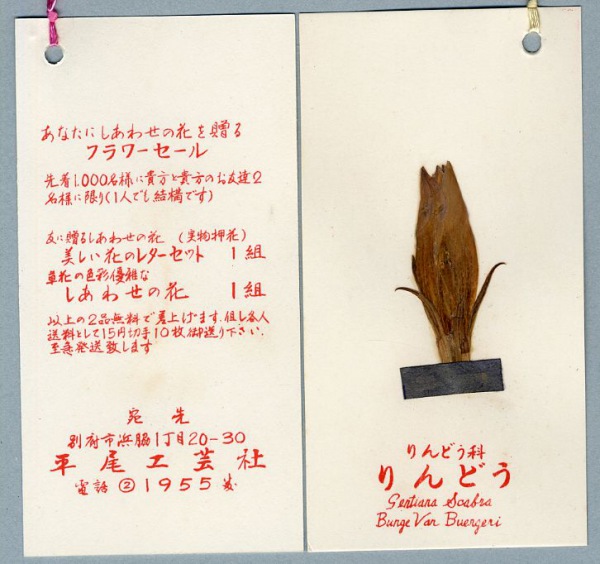 あなたにしあわせの花を贈る
フラワーセール
先着1.000名様に貴方と貴方のお友達2
名様に限り(1人でも結構です)
友に贈るしあわせの花 (実物押花)
美しい花のレターセット 1組
草花の色彩優雅な
しあわせの花 1組
以上の2品無料で差上げます.但し各人
送料として15円切手10枚御送り下さい.
至急発送致します
宛先
別府市浜脇1丁目20-30
平尾工芸社
電話 ② 1955
りんどう科
りんどう
Gentiana Scabra
Bunge Van Buergeri